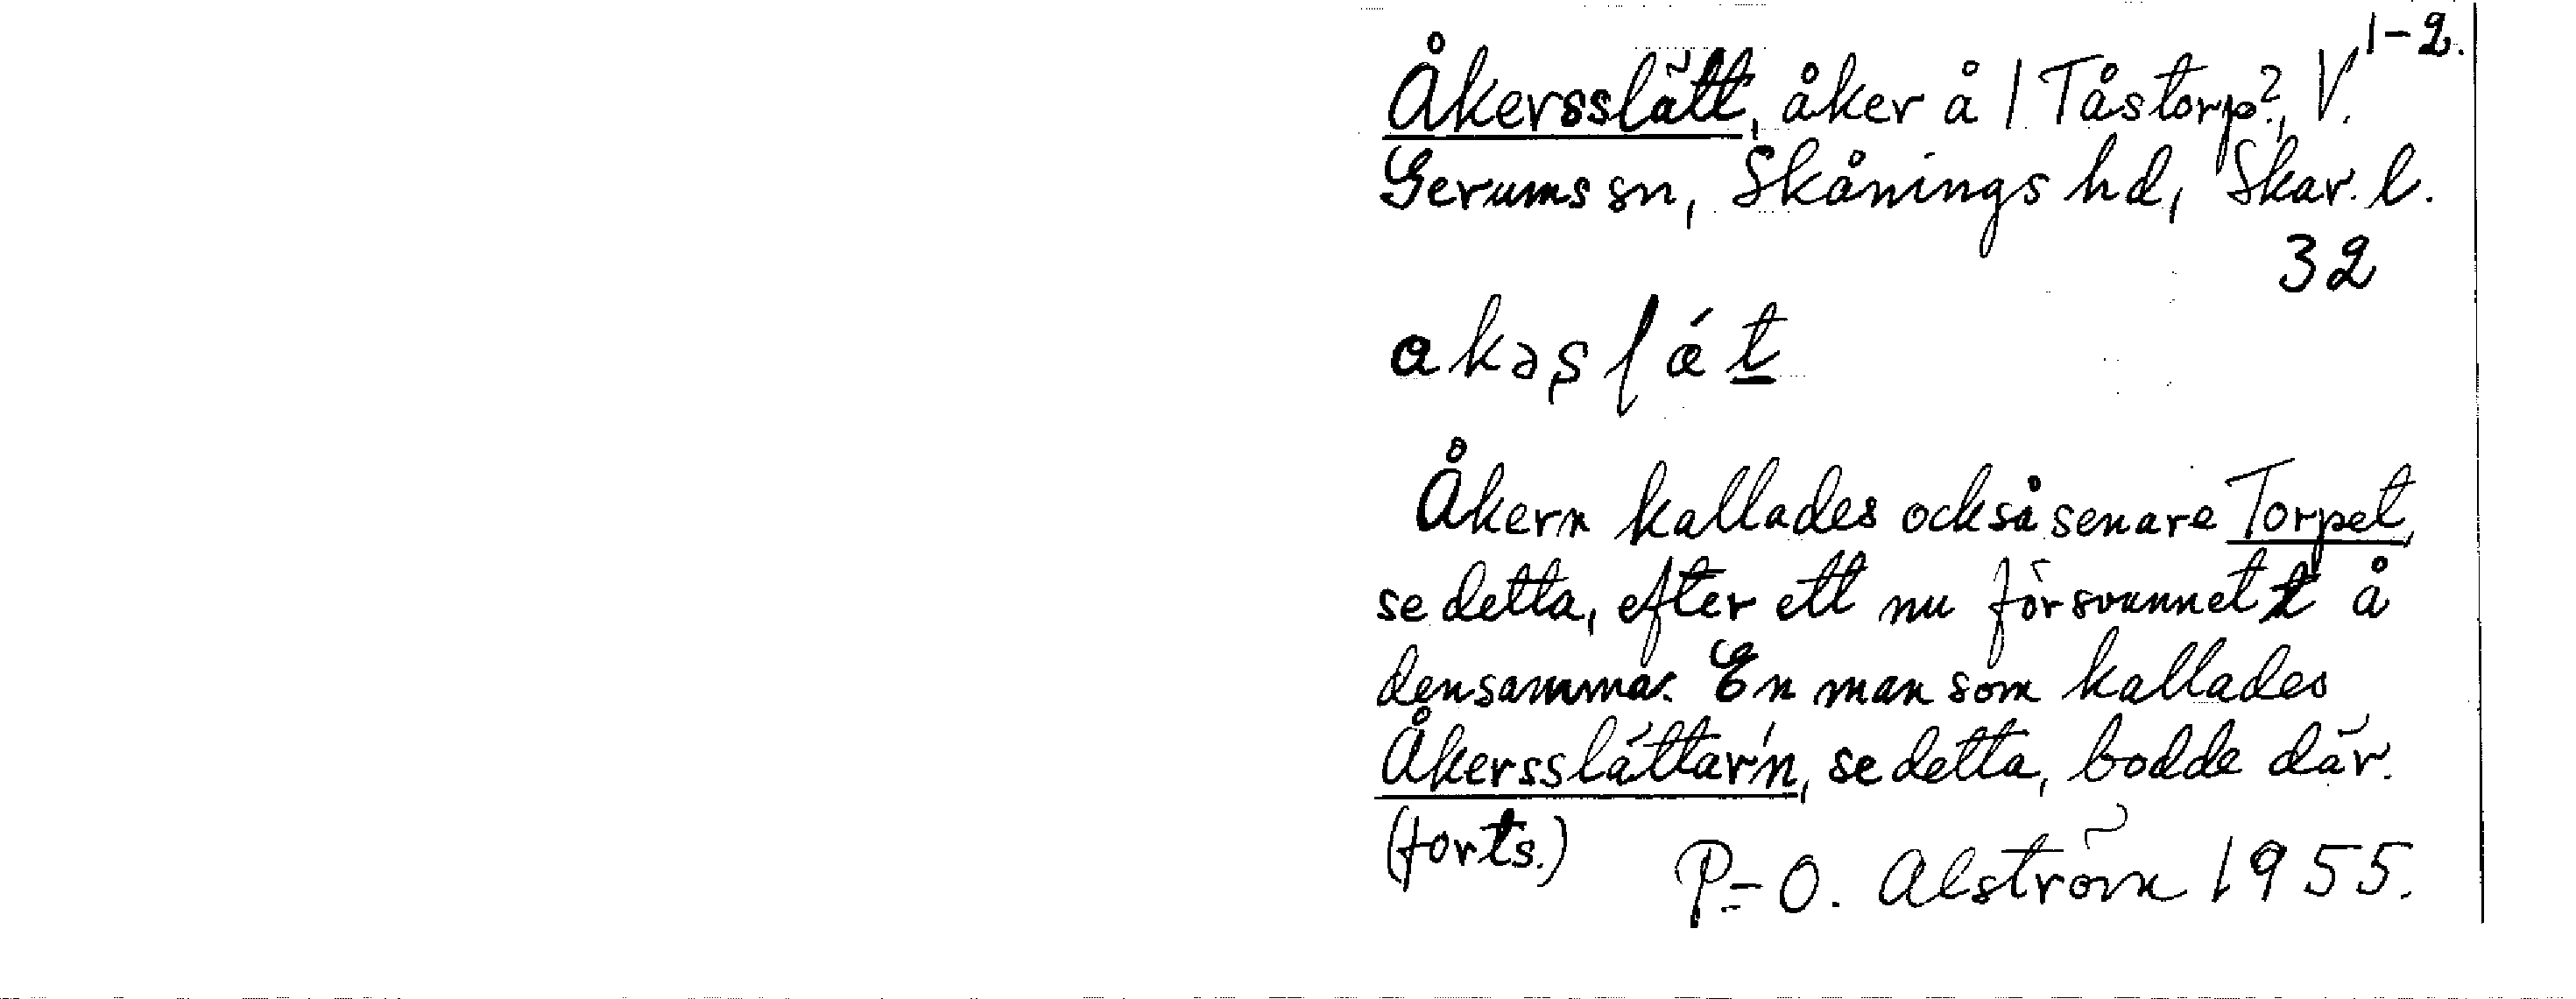 1-2.
Åkersslätt, åker å 1 Tåstorp?, V.
Gerums sn, Skånings hd, Skar. l.
32
akəs̩ l ǽ t
Åkern kallades också senare Torpet,
se detta, efter ett nu försvunnet t å
densamma. En man som kallades
Åkersslättar'n, se detta, bodde där.
(forts.)
P-O. Alström 1955.